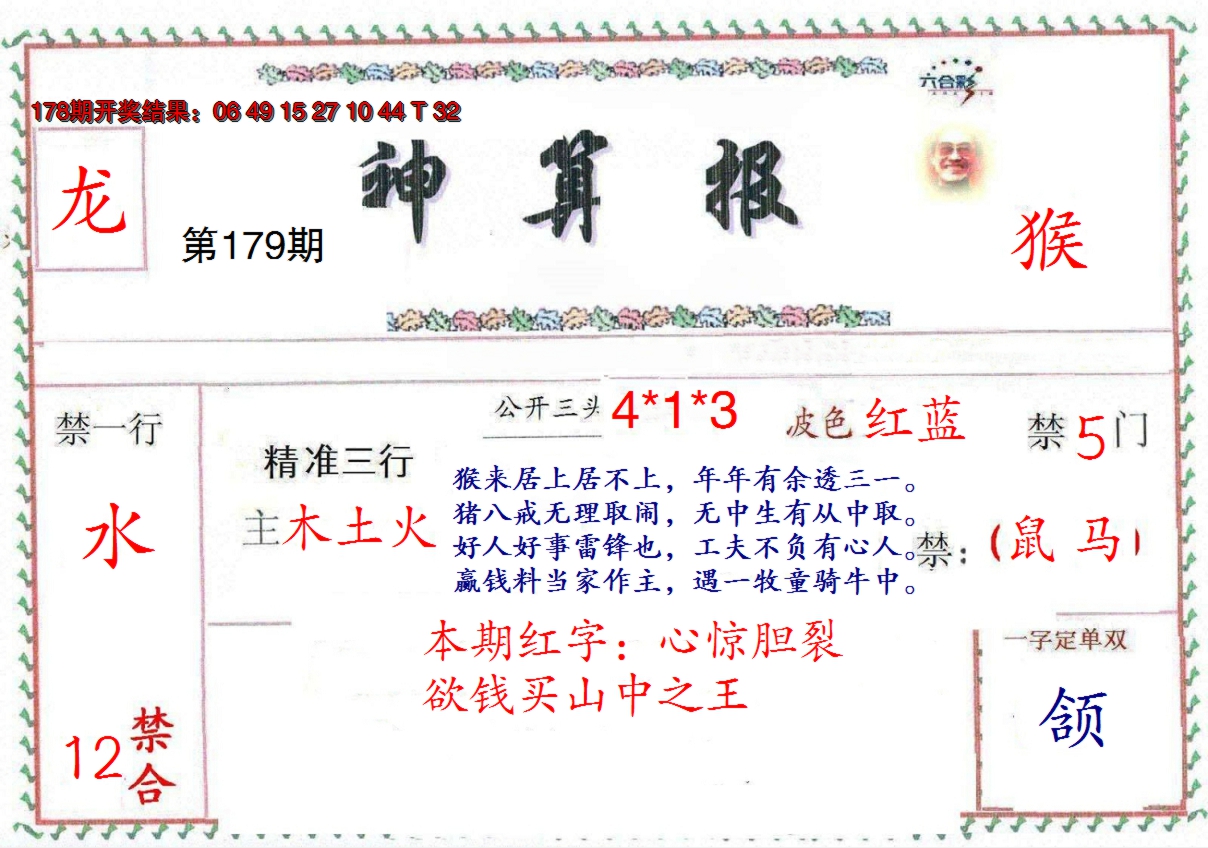 六合彩
178期开奖结果：06 49 15 27 10 44 T 32
神算报
龙
第179期
猴
公开三头 4*1*3
波色 红蓝
禁5门
禁一行
水
精准三行
主木土火
猴来居上居不上，年年有余透三一。
猪八戒无理取闹，无中生有从中取。
好人好事雷锋也，工夫不负有心人。
赢钱料当家作主，遇一牧童骑牛中。
禁：（鼠 马）
本期红字：心惊胆裂
欲钱买山中之王
一字定单双
颔
12禁合